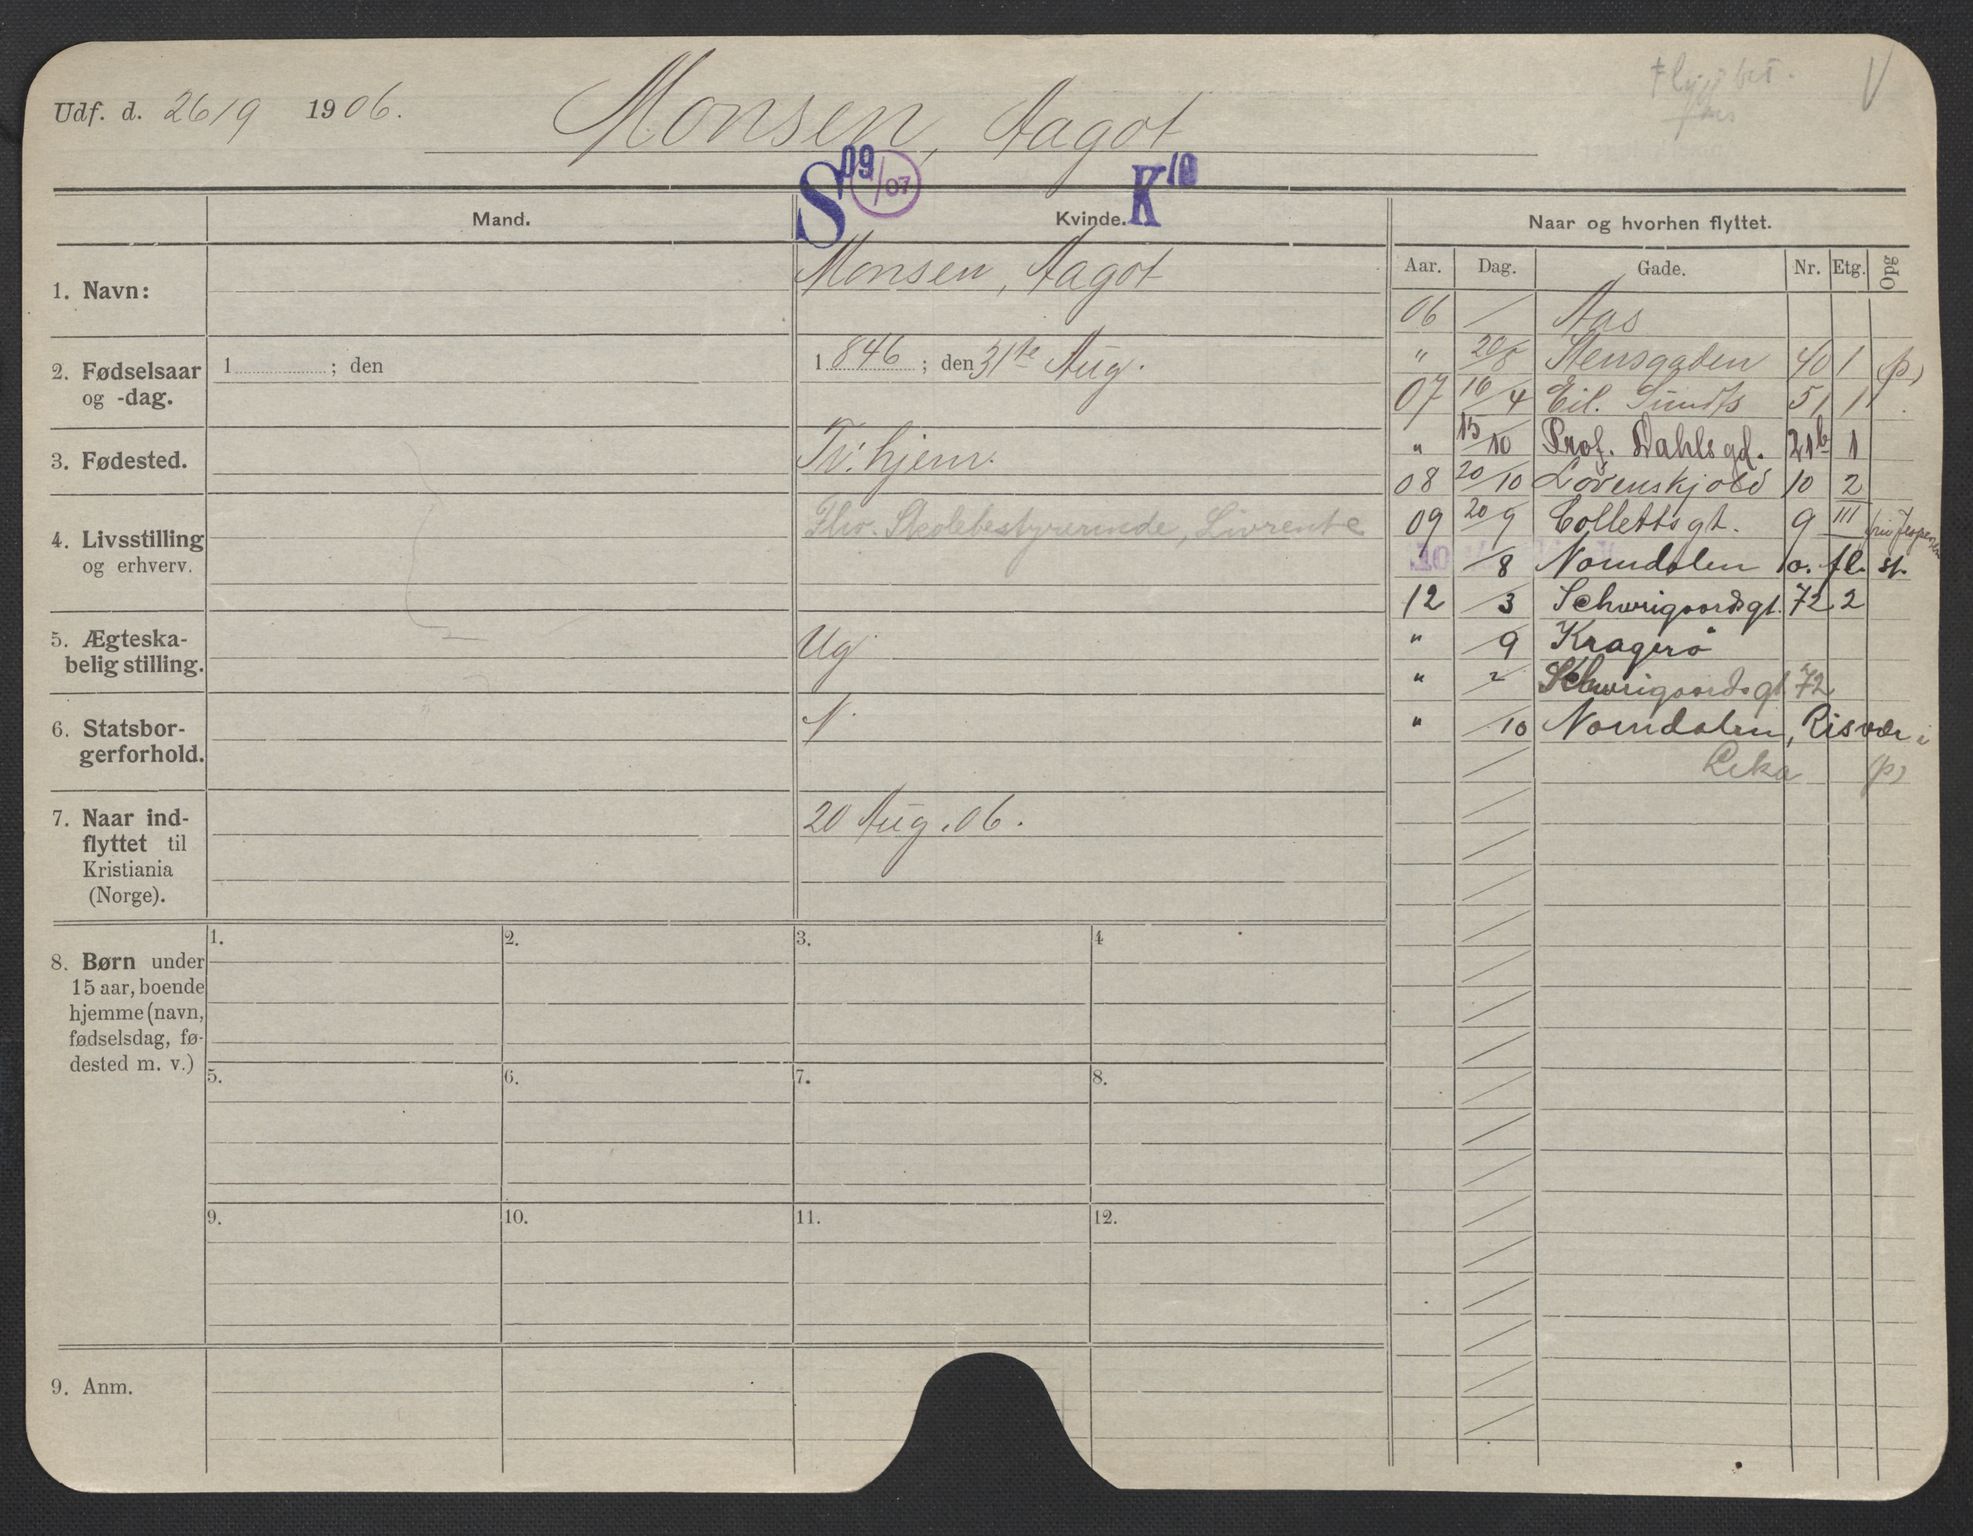 Udf. d. 26/9 1906. Monsen, Aagot
V
S 09 /07 K 10
Mand. Kvinde. Naar og hvorhen flyttet.
Aar. Dag. Gade. Nr. Etg. Opg
1. Navn: Monsen, Aagot
2. Fødselsaar og -dag. 1 ; den 1846 ; den 31te Aug.
3. Fødested. Tr:hjem.
4. Livsstilling og erhverv. Fhv. Skolebestyrerinde, Livrente
5. Ægteskabelig stilling. Ug
6. Statsborgerforhold. N.
7. Naar indflyttet til Kristiania (Norge). 20 Aug. 06.
8. Børn under 15 aar, boende hjemme (navn, fødselsdag, fødested m. v.)
1. 2. 3. 4
5. 6. 7. 8.
9. 10. 11. 12.
9. Anm.
06 / Aas
" 20/8 Stensgaden 40 1 (p)
07 16/4 Eil. Sundts 51 1
" 15/10 Prof. Dahls gd. 21b 1
08 20/10 Løvenskjold 10 2
09 20/9 Collettsgt. 9 III
10 /8 Namdalen o. fl. st.
12 /3 Schweigaardsgt. 72 2
" /9 Kragerø
" " Schweigaardsgt 72
" /10 Namdalen, Risvær i
Leka (p)